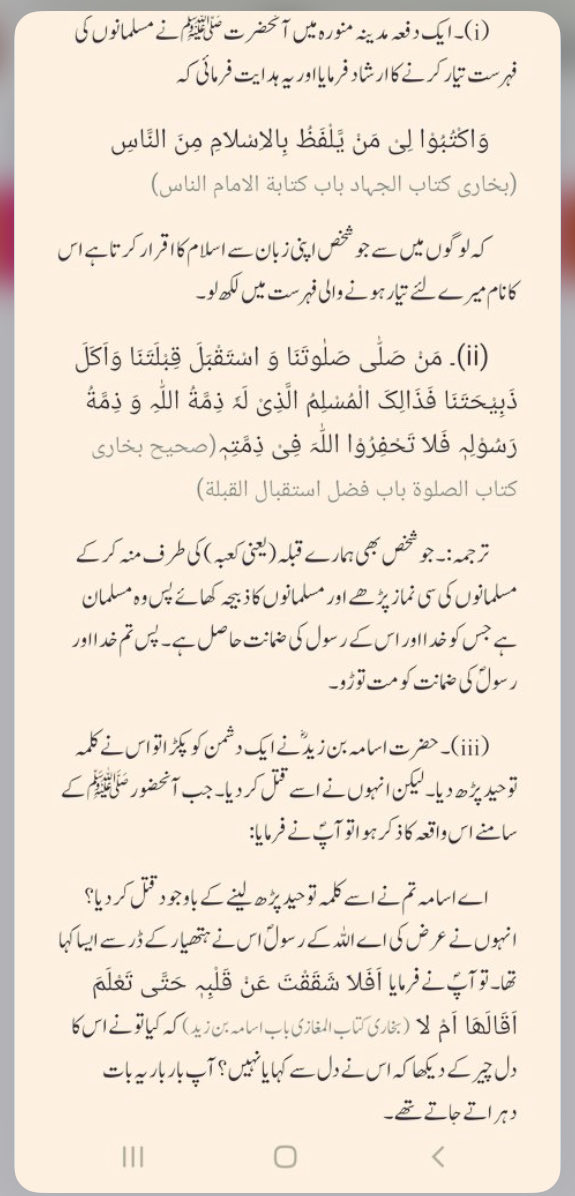 (i)۔ ایک دفعہ مدینہ منورہ میں آنحضرت ﷺ نے مسلمانوں کی
فہرست تیار کرنے کا ارشاد فرمایا اور یہ ہدایت فرمائی کہ
وَاکْتُبُوْا لِیْ مَنْ یَّلْفَظُ بِالاِسْلامِ مِنَ النَّاسِ
(بخاری کتاب الجہاد باب کتابة الامام الناس)
کہ لوگوں میں سے جو شخص اپنی زبان سے اسلام کا اقرار کرتا ہے اس
کا نام میرے لئے تیار ہونے والی فہرست میں لکھ لو۔
(ii)۔ مَنْ صَلّٰی صَلٰوتَنَا وَ اسْتَقْبَلَ قِبْلَتَنَا وَاَکَلَ
ذَبِیْحَتَنَا فَذَالِکَ الْمُسْلِمُ الَّذِیْ لَہٗ ذِمَّةُ اللّٰہِ وَ ذِمَّةُ
رَسُوْلِہٖ فَلا تَخْفِرُوْا اللّٰہَ فِیْ ذِمَّتِہٖ (صحیح بخاری
کتاب الصلوة باب فضل استقبال القبلة)
ترجمہ:۔ جو شخص بھی ہمارے قبلہ (یعنی کعبہ) کی طرف منہ کر کے
مسلمانوں کی سی نماز پڑھے اور مسلمانوں کا ذبیحہ کھائے پس وہ مسلمان
ہے جس کو خدا اور اس کے رسول کی ضمانت حاصل ہے۔ پس تم خدا اور
رسولؐ کی ضمانت کو مت توڑو۔
(iii)۔ حضرت اسامہ بن زیدؓ نے ایک دشمن کو پکڑا تو اس نے کلمہ
توحید پڑھ دیا۔ لیکن انہوں نے اسے قتل کر دیا۔ جب آنحضور ﷺ کے
سامنے اس واقعہ کا ذکر ہوا تو آپؐ نے فرمایا:
اے اسامہ تم نے اسے کلمہ توحید پڑھ لینے کے باوجود قتل کر دیا؟
انہوں نے عرض کی اے اللہ کے رسولؐ اس نے ہتھیار کے ڈر سے ایسا کہا
تھا۔ تو آپؐ نے فرمایا اَفَلا شَقَقْتَ عَنْ قَلْبِہٖ حَتّٰی تَعْلَمَ
اَقَالَھَا اَمْ لا (بخاری کتاب المغازی باب اسامہ بن زید) کہ کیا تو نے اس کا
دل چیر کے دیکھا کہ اس نے دل سے کہا یا نہیں؟ آپ بار بار یہ بات
دہراتے جاتے تھے۔